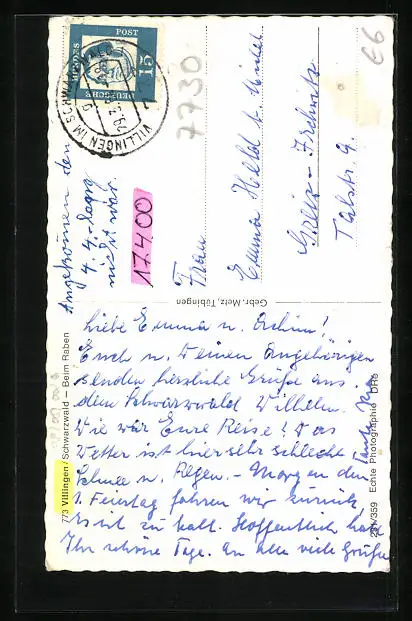 Angekommen den
4. 4. -
nicht war.
17.4.00
7730
€6
DEUTSCHE
BUNDES
POST
15
VILLINGEN IM SCHWARZWALD
Frau
Emma Held
Greiz-Irchwitz
Talstr. 9.
Gebr. Metz, Tübingen
773 Villingen/Schwarzwald — Beim Raben
Echte Photographie
Liebe Emma u. Achim!
Euch u. Deinen Angehörigen
senden herzliche Grüße aus
dem Schwarzwald
Wie war Eure Reise? Das
Wetter ist hier sehr schlecht
Schnee u. Regen. - Morgen den
1. Feiertag fahren wir zurück,
es ist zu kalt. Hoffentlich habt
Ihr schöne Tage. An alle viele Grüße